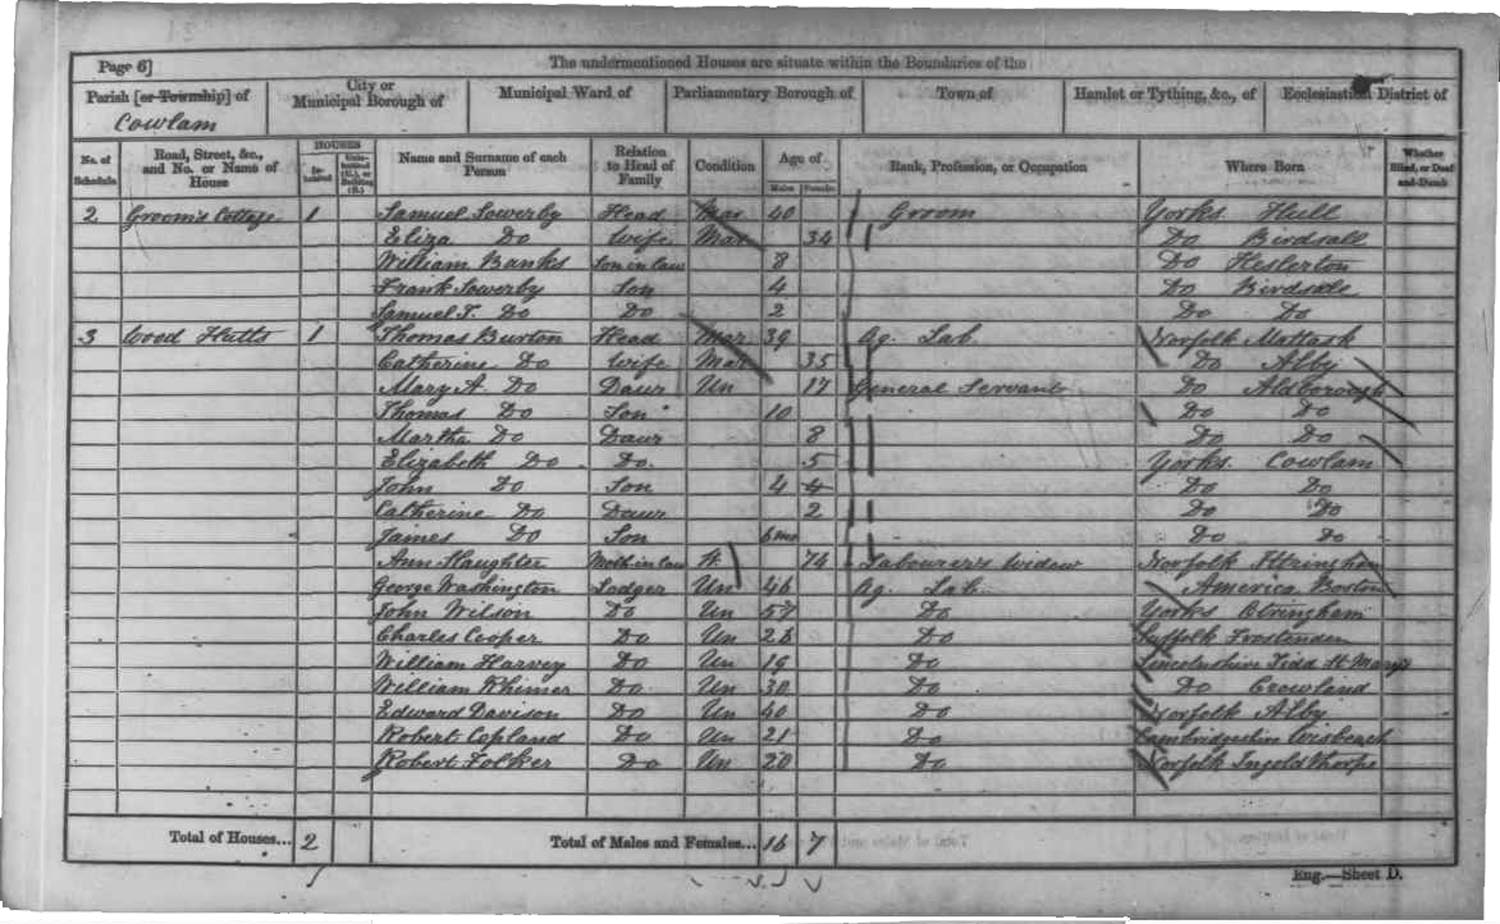 Page 6] The undermentioned Houses are situate within the Boundaries of the
Parish [or Township] of City or Municipal Borough of Municipal Ward of Parliamentary Borough of Town of Hamlet or Tything, &c., of Ecclesiastical District of
Cowlam
No. of Schedule Road, Street, &c., and No. or Name of House HOUSES Inhabited Uninhabited (U.), or Building (B.) Name and Surname of each Person Relation to Head of Family Condition Age of Males Females Rank, Profession, or Occupation Where Born Whether Blind, or Deaf and-Dumb
2 Groom's Cottage 1 Samuel Sowerby Head Mar 40 Groom Yorks Hull
Eliza Do Wife Mar 34 Do Birdsall
William Banks Son in law 8 Do Heslerton
Frank Sowerby Son 4 Do Birdsall
Samuel T. Do Do 2 Do Do
3 Wood Hutts 1 Thomas Burton Head Mar 39 Ag. Lab. Norfolk Mattask
Catherine Do Wife Mar 35 Do Alby
Mary A. Do Daur Un 17 General Servant Do Aldborough
Thomas Do Son 10 Do Do
Martha Do Daur 8 Do Do
Elizabeth Do Do. 5 Yorks. Cowlam
John Do Son 4 4 Do Do
Catherine Do Daur 2 Do Do
James Do Son 6 mo Do Do
Ann Slaughter Moth-in law 74 Labourer's Widow Norfolk Ittringham
George Washington Lodger Un 46 Ag. Lab. America Boston
John Wilson Do Un 57 Do Yorks Otringham
Charles Cooper Do Un 26 Do Suffolk Frostenden
William Harvey Do Un 19 Do Lincolnshire Tidd St Marys
William Rhimer Do Un 30 Do Do Crowland
Edward Davison Do Un 40 Do Norfolk Alby
Robert Copland Do Un 21 Do Cambridgeshire Wisbeach
Robert Folker Do Un 20 Do Norfolk Ingoldthorpe
Total of Houses... 2 Total of Males and Females... 16 7
Eng.—Sheet D.